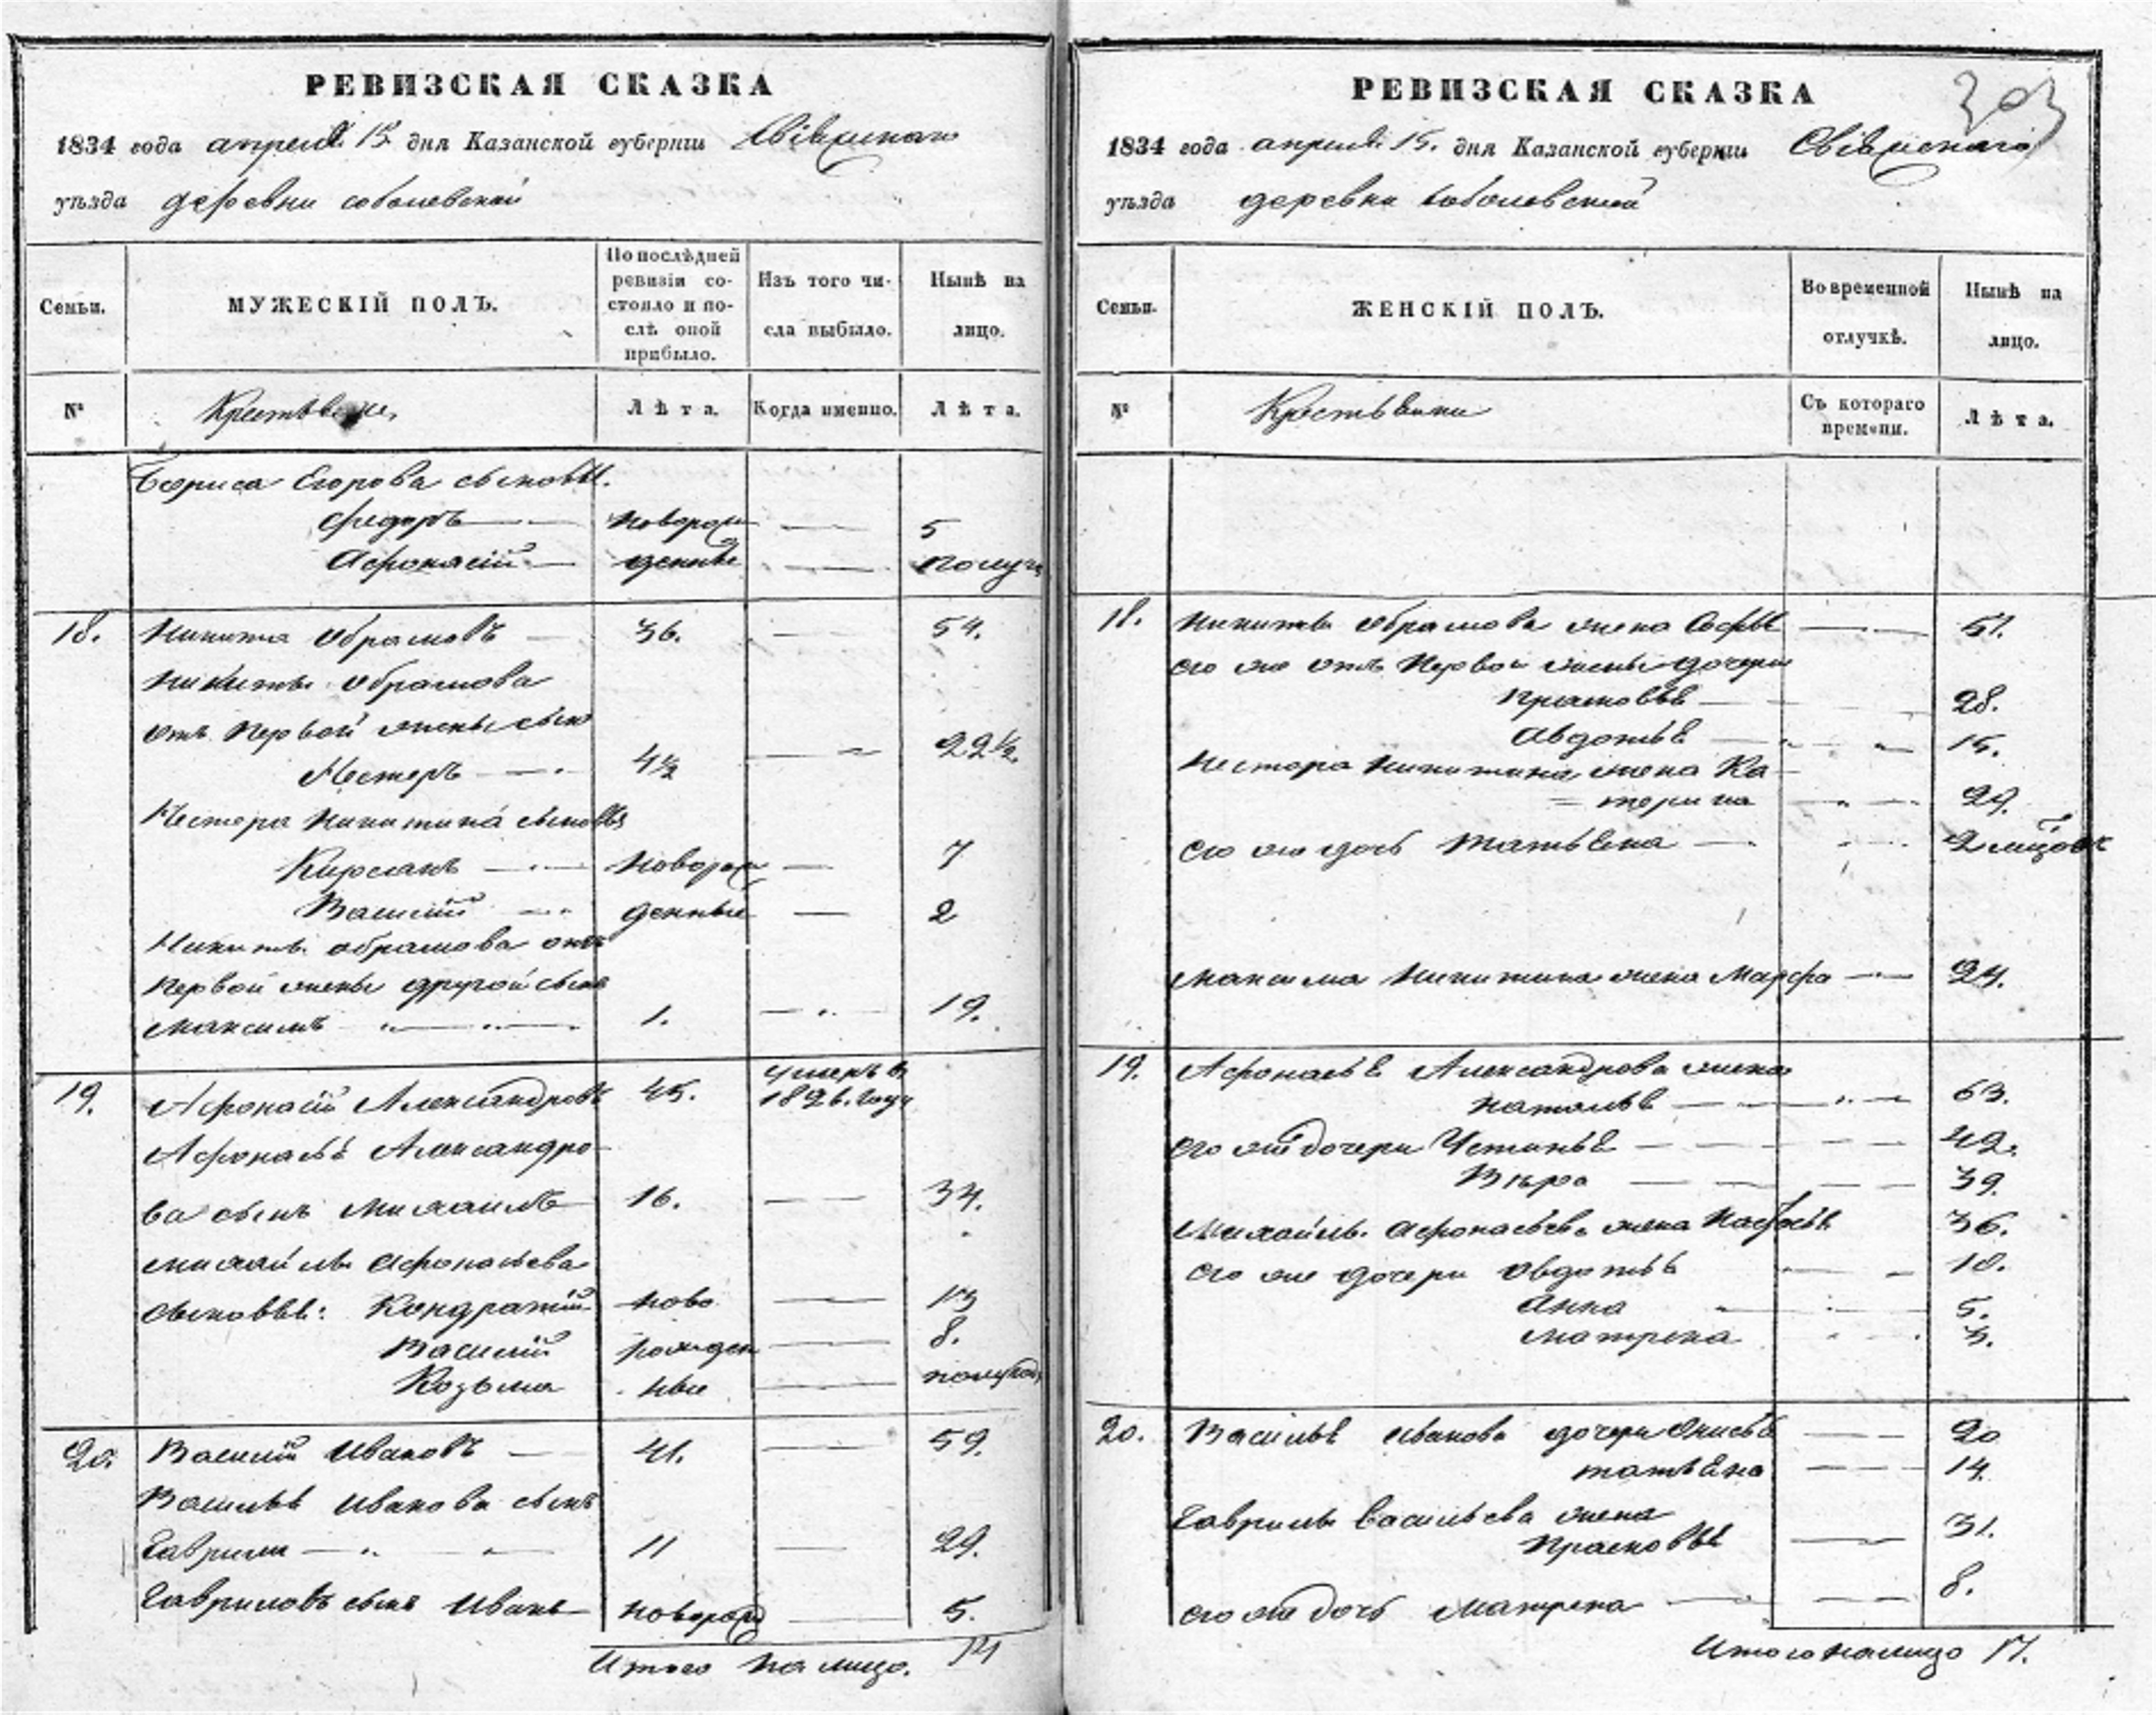 РЕВИЗСКАЯ СКАЗКА
1834 года апреля 15 дня Казанской губерніи Свіяжскаго
уѣзда деревни соболевской
Семьи.
МУЖЕСКІЙ ПОЛЪ.
По послѣдней ревизіи состояло и послѣ оной прибыло.
Изъ того числа выбыло.
Нынѣ на лицо.
№
Крестьяне,
Лѣта.
Когда именно.
Лѣта.
Бориса Егорова сыновья.
Федоръ новорож 5
Афонасій денные полугод
18. Никита Обрамовъ 36. 54.
Никиты Обрамова
отъ первой жены сынъ
Нестеръ 4½ 22½.
Нестера Никитина сыновья
Кирсанъ новорож 7
Василій денные 2
Никиты обрамова отъ
первой жены другой сынъ
Максимъ 1. 19.
19. Афонасій Александровъ 45. умеръ въ 1826. году
Афонасья Александро-
ва сынъ Михаилъ 16. 34.
Михайлы Афонасьева
сыновья: Кондратій ново 13
Василій рожден 8.
Козьма ные полугод
20. Василій Ивановъ 41. 59.
Василья Иванова сынъ
Гаврила 11 29.
Гавриловъ сынъ Иванъ новорожд 5.
Итого на лицо. 14
303
РЕВИЗСКАЯ СКАЗКА
1834 года апреля 15. дня Казанской губерніи Свіяжскаго
уѣзда деревни соболевской
Семьи.
ЖЕНСКІЙ ПОЛЪ.
Во временной отлучкѣ.
Нынѣ на лицо.
№
Крестьянки
Съ котораго времени.
Лѣта.
18. Никиты Обрамова жена Софья 51.
его же отъ первой жены дочери
Прасковья 28.
Авдотья 15.
Нестора Никитина жена Ка-
терина 29.
его же дочь Татьяна 2
Максима Никитина жена Марфа 24.
19. Афонасья Александрова жена
Наталья 63.
его же дочери Устинья 42.
Вѣра 39.
Михайлы Афонасьева жена Настасья 36.
его же дочери Овдотья 10.
Анна 5.
Матрена 3.
20. Василья Иванова дочери Анисья 20
татьяна 14.
Гаврилы Васильева жена
Прасковья 31.
его же дочь Матрена 8.
Итого налицо 17.